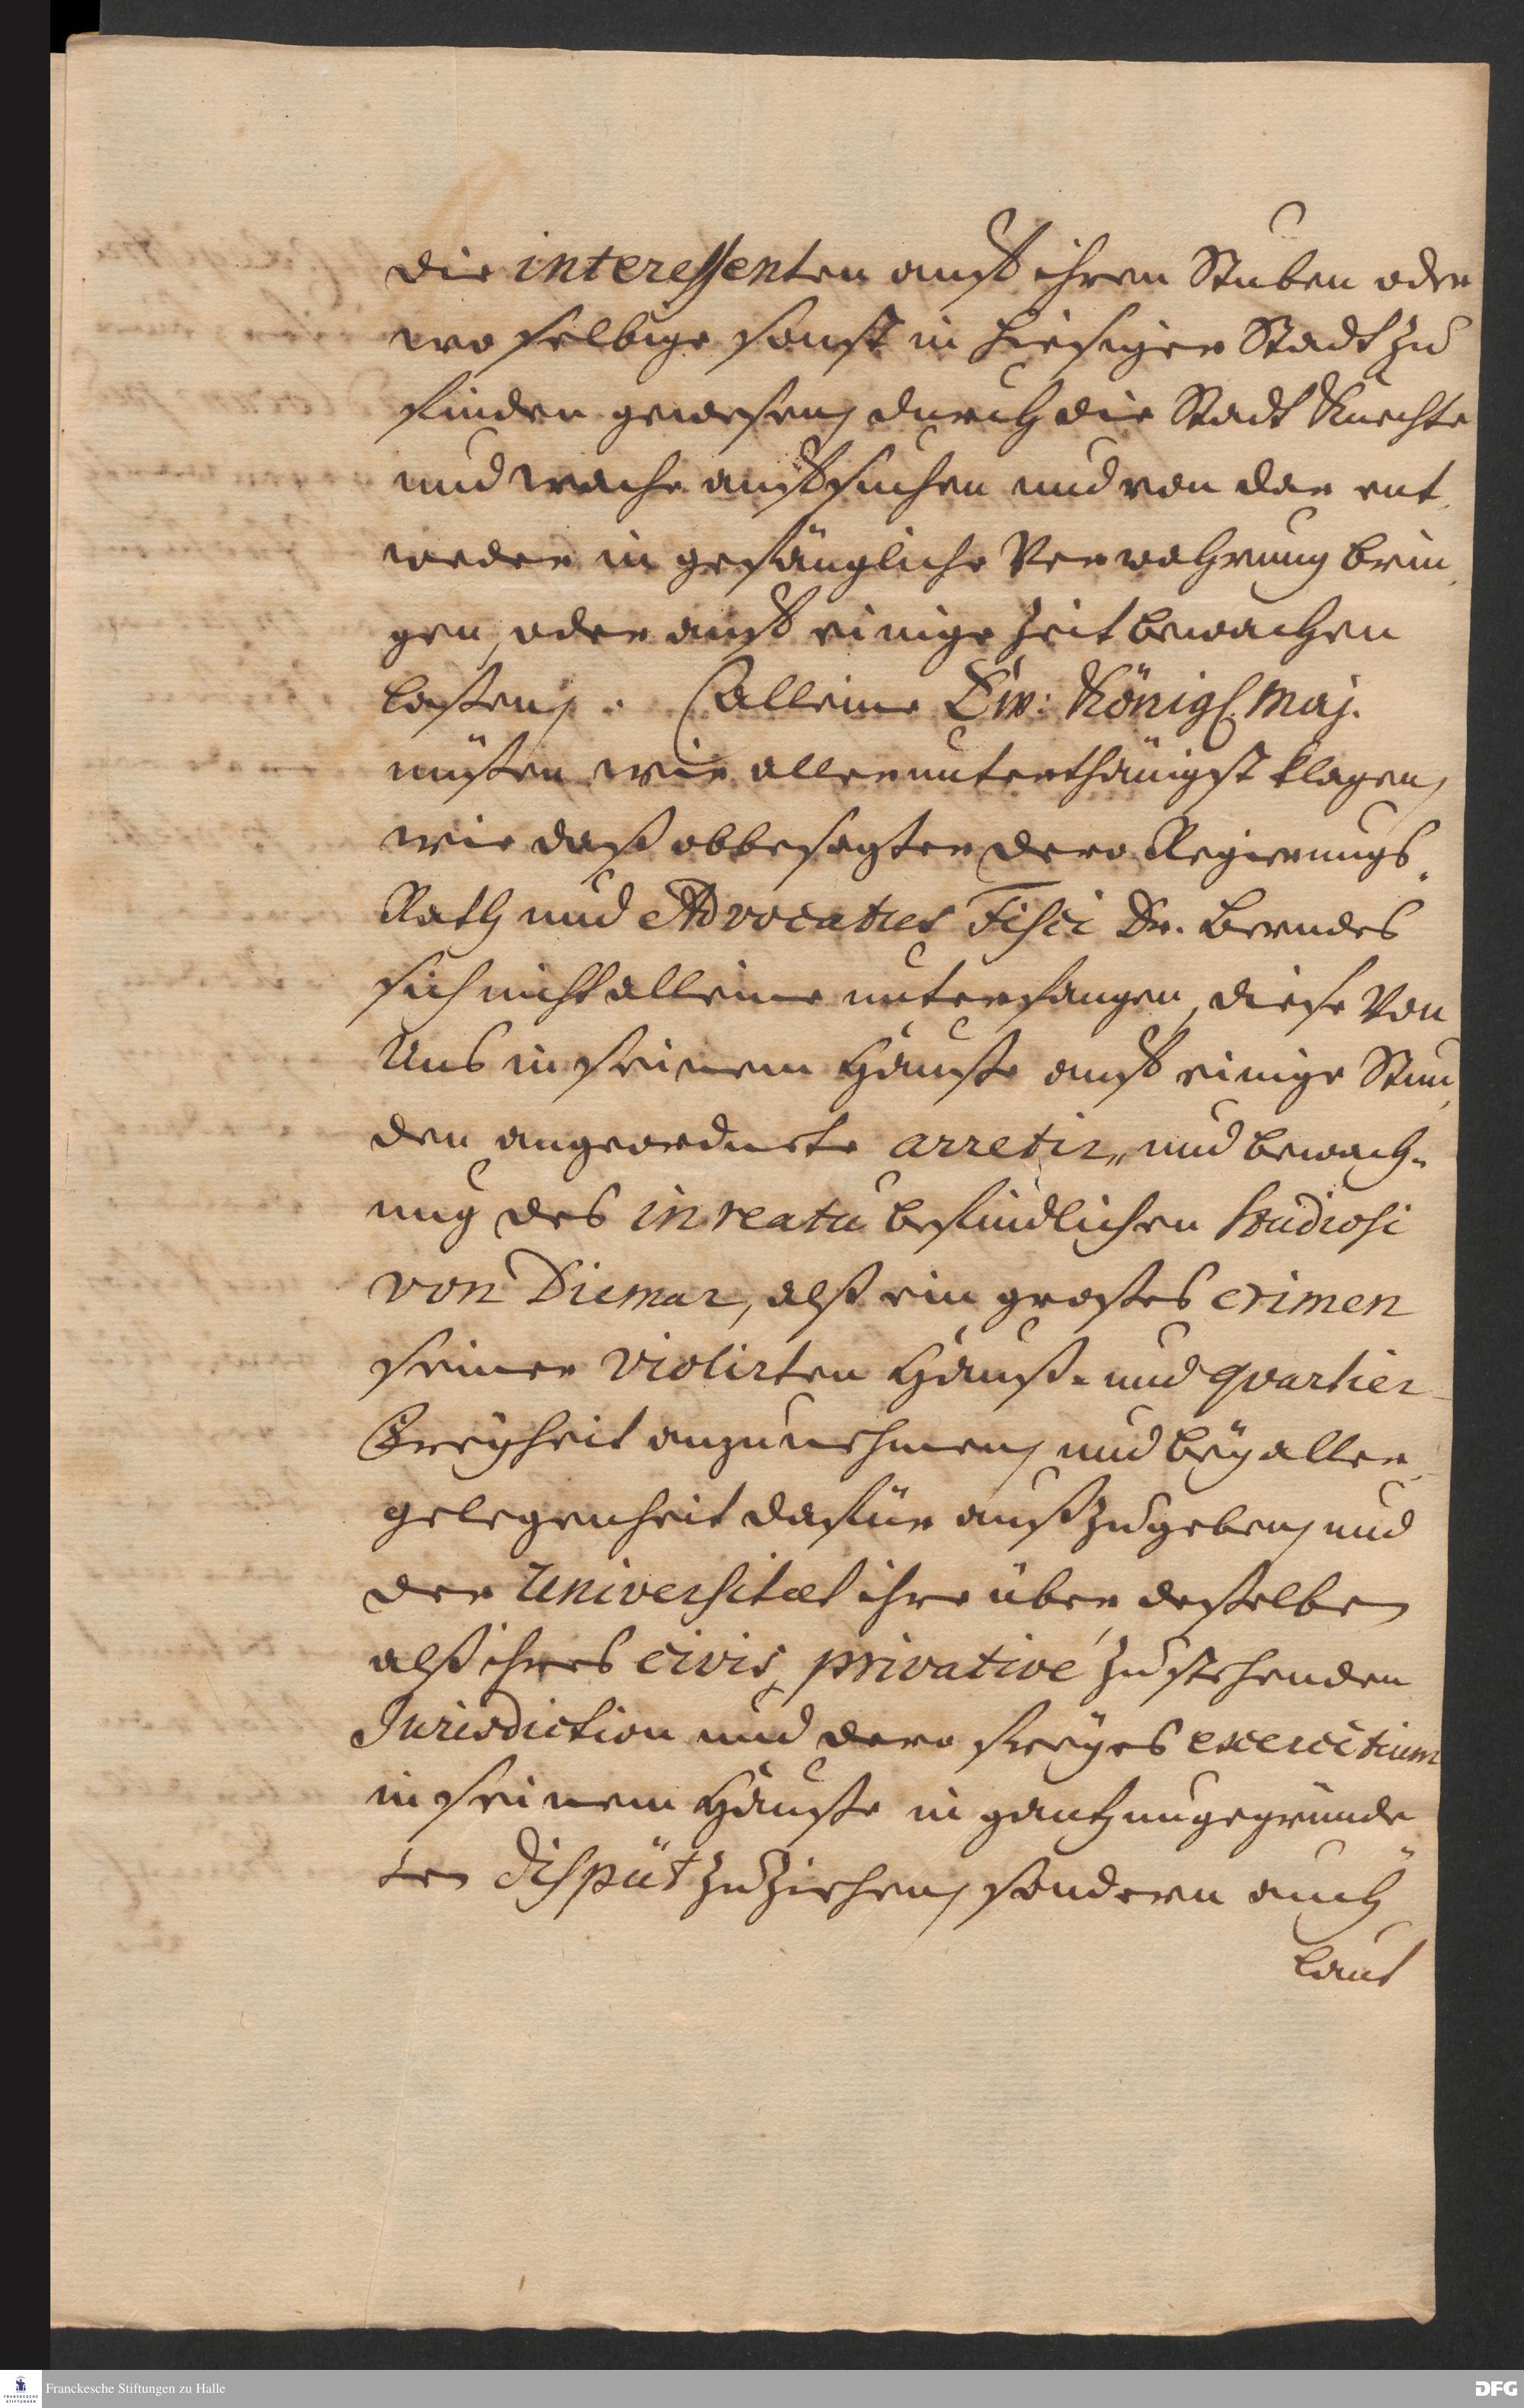 die interessenten auß ihren Stuben oder
wo selbige sonst in hiesiger Stadt zu
finden gewesen, durch die Stadt Knechte
und wache aufsuchen und von dar ent-
weder in gefängliche Verwahrung brin-
gen, oder auf einige Zeit bewachen
laßen. Alleine Ew: Königl. Maj.
müßen wir allerunterthänigst klagen,
wie daß obbesagter dero Regierungs-
Rath und Advocatus Fisci Dr. Berndes
sich nicht alleine unterfangen, diese Von
Uns in seinem Hauße auf einige Stun-
den angeordnete arretir- und bewach-
ung des in reatu befindlichen Studiosi
von Diemar, alß ein großes crimen
seiner violirten Hauß- und quartier-
Freyheit anzunehmen, und bey aller
gelegenheit dafür außzugeben, und
der Universitæt ihre über deßelben
alß ihres civis, privative zustehenden
Jurisdiction und dero freyes exercitium
in seinem Hauße in gantz ungegründe-
ten Disput zu Ziehen, sondern auch
laut
Franckesche Stiftungen zu Halle
DFG